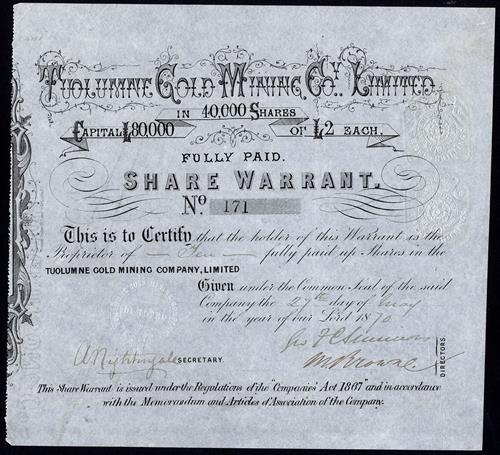 TUOLUMNE GOLD MINING CO.Y. LIMITED
IN 40,000 SHARES
CAPITAL £80,000 OF £2 EACH.
FULLY PAID.
SHARE WARRANT.
No 171
This is to Certify that the holder of this Warrant is the
Proprietor of Ten fully paid up Shares in the
TUOLUMNE GOLD MINING COMPANY, LIMITED
Given under the Common Seal of the said
Company the 27th day of May
in the year of our Lord 1870
Geo F C Simmons
A Nightingale SECRETARY.
M Browne
DIRECTORS
This Share Warrant is issued under the Regulations of the "Companies' Act 1867" and in accordance
with the Memorandum and Articles of Association of the Company.